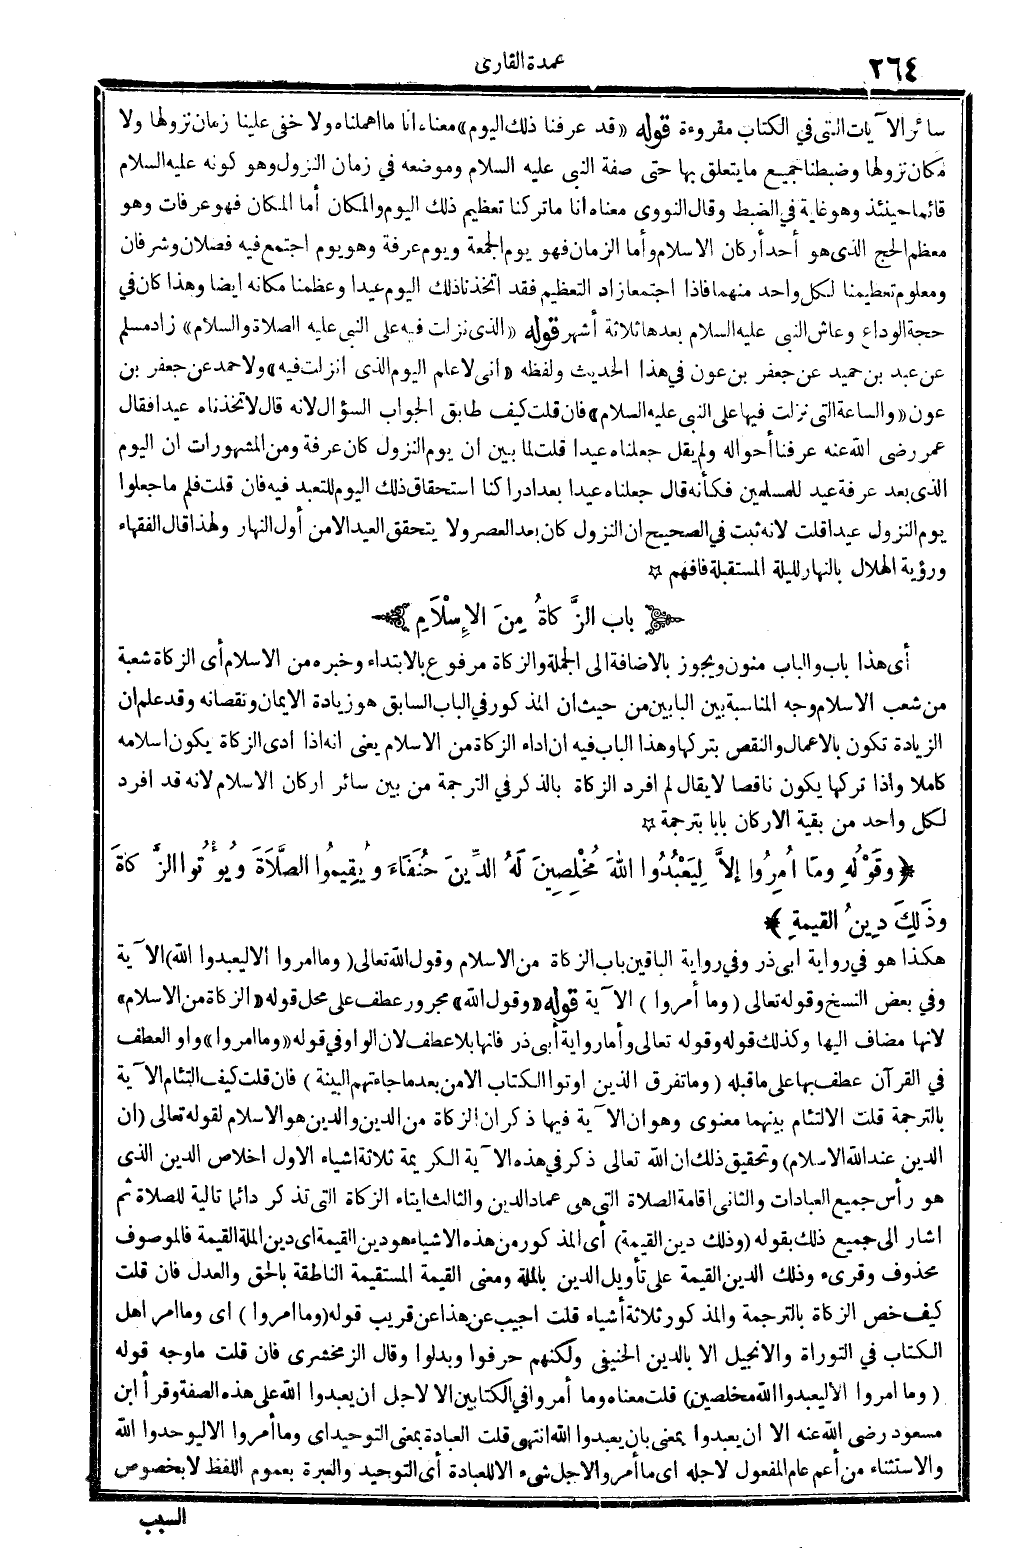 ٢٦٤
عمدة القارى
سائر الآيات التى في الكتاب مقروءة قوله «قد عرفنا ذلك اليوم» معناه انا ما اهملناه ولا خفى علينا زمان نزولها ولا
مكان نزولها وضبطنا جميع ما يتعلق بها حتى صفة النبى عليه السلام وموضعه في زمان النزول وهو كونه عليه السلام
قائما حينئذ وهو غاية في الضبط وقال النووى معناه انا ما تركنا تعظيم ذلك اليوم والمكان أما المكان فهو عرفات وهو
معظم الحج الذى هو أحد أركان الاسلام وأما الزمان فهو يوم الجمعة ويوم عرفة وهو يوم اجتمع فيه فصلان وشرفان
ومعلوم تعظيمنا لكل واحد منهما فاذا اجتمعا زاد التعظيم فقد اتخذنا ذلك اليوم عيدا وعظمنا مكانه ايضا وهذا كان في
حجة الوداع وعاش النبى عليه السلام بعدها ثلاثة أشهر قوله «الذى نزلت فيه على النبى عليه الصلاة والسلام» زاد مسلم
عن عبد بن حميد عن جعفر بن عون في هذا الحديث ولفظه «انى لاعلم اليوم الذى انزلت فيه» ولاحمد عن جعفر بن
عون «والساعة التى نزلت فيها على النبى عليه السلام» فان قلت كيف طابق الجواب السؤال لانه قال لاتخذناه عيدا فقال
عمر رضى الله عنه عرفنا أحواله ولم يقل جعلناه عيدا قلت لما بين ان يوم النزول كان عرفة ومن المشهورات ان اليوم
الذى بعد عرفة عيد للمسلمين فكأنه قال جعلناه عيدا بعد ادراكنا استحقاق ذلك اليوم للتعبد فيه فان قلت فلم ما جعلوا
يوم النزول عيدا قلت لانه ثبت في الصحيح ان النزول كان بعد العصر ولا يتحقق العيد الا من أول النهار ولهذا قال الفقهاء
ورؤية الهلال بالنهار لليلة المستقبلة فافهم ☆
باب الزَّكاةُ مِنَ الإِسْلَامِ
أى هذا باب والباب منون ويجوز بالاضافة الى الجملة والزكاة مرفوع بالابتداء وخبره من الاسلام أى الزكاة شعبة
من شعب الاسلام وجه المناسبة بين البابين من حيث ان المذكور في الباب السابق هو زيادة الايمان ونقصانه وقد علم ان
الزيادة تكون بالاعمال والنقص بتركها وهذا الباب فيه ان اداء الزكاة من الاسلام يعنى انه اذا ادى الزكاة يكون اسلامه
كاملا واذا تركها يكون ناقصا لا يقال لم افرد الزكاة بالذكر في الترجمة من بين سائر اركان الاسلام لانه قد افرد
لكل واحد من بقية الاركان بابا بترجمة ☆
﴿ وقَوْلُهِ ومَا اُمِرُوا إلاَّ لِيَعْبُدُوا اللهَ مُخْلِصِينَ لَهُ الدِّينَ حُنَفَاءَ ويُقِيمُوا الصَّلَاةَ ويُؤْتُوا الزَّكاةَ
وذَلِكَ دِينُ القيمةِ ﴾
هكذا هو في رواية ابى ذر وفي رواية الباقين باب الزكاة من الاسلام وقول الله تعالى (وما امروا الا ليعبدوا الله) الآية
وفي بعض النسخ وقوله تعالى (وما أمروا) الآية قوله «وقول الله» مجرور عطف على محل قوله «الزكاة من الاسلام»
لانها مضاف اليها وكذلك قوله وقوله تعالى وأما رواية أبى ذر فانها بلا عطف لان الواو في قوله «وما امروا» واو العطف
في القرآن عطف بها على ما قبله (وما تفرق الذين اوتوا الكتاب الا من بعد ما جاءتهم البينة) فان قلت كيف التئام الآية
بالترجمة قلت الالتئام بينهما معنوى وهو ان الآية فيها ذكر ان الزكاة من الدين والدين هو الاسلام لقوله تعالى (ان
الدين عند الله الاسلام) وتحقيق ذلك ان الله تعالى ذكر في هذه الآية الكريمة ثلاثة اشياء الاول اخلاص الدين الذى
هو رأس جميع العبادات والثانى اقامة الصلاة التى هى عماد الدين والثالث ايتاء الزكاة التى تذكر دائما تالية للصلاة ثم
اشار الى جميع ذلك بقوله (وذلك دين القيمة) أى المذكور من هذه الاشياء هو دين القيمة اى دين الملة القيمة فالموصوف
محذوف وقرىء وذلك الدين القيمة على تأويل الدين بالملة ومعنى القيمة المستقيمة الناطقة بالحق والعدل فان قلت
كيف خص الزكاة بالترجمة والمذكور ثلاثة أشياء قلت اجيب عن هذا عن قريب قوله (وما امروا) اى وما امر اهل
الكتاب في التوراة والانجيل الا بالدين الحنيفى ولكنهم حرفوا وبدلوا وقال الزمخشرى فان قلت ما وجه قوله
(وما امروا الا ليعبدوا الله مخلصين) قلت معناه وما أمروا في الكتابين الا لاجل ان يعبدوا الله على هذه الصفة وقرأ ابن
مسعود رضى الله عنه الا ان يعبدوا بمعنى بان يعبدوا الله انتهى قلت العبادة بمعنى التوحيد اى وما أمروا الا ليوحدوا الله
والاستثناء من أعم عام المفعول لاجله اى ما أمروا لاجل شىء الا للعبادة أى التوحيد والعبرة بعموم اللفظ لا بخصوص
السبب